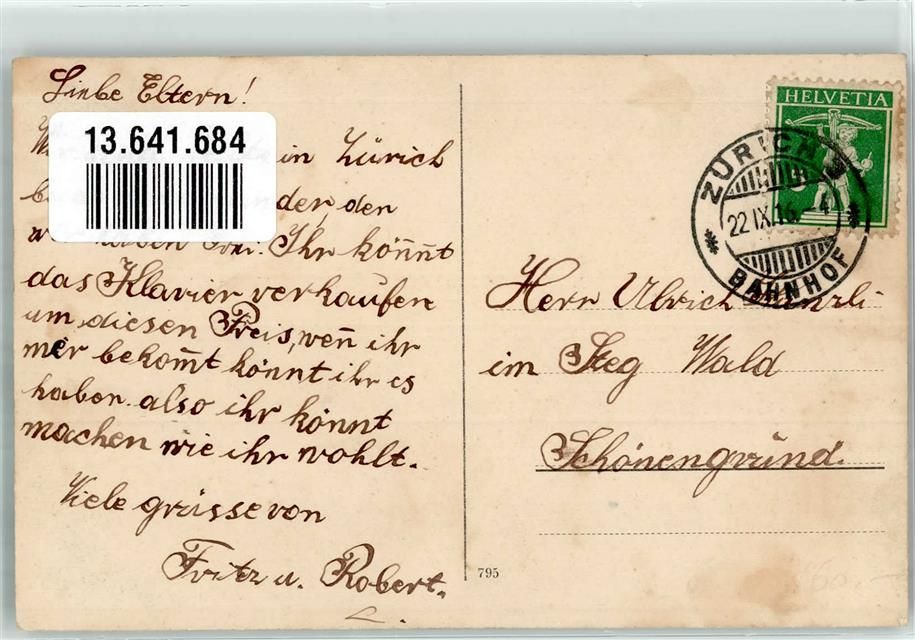 Liebe Eltern!
13.641.684
in Zürich
den
Ihr könn̄t
das Klavier verkaufen
um diesen Preis, wen̄ ihr
mer bekom̄t könnt ihr es
haben. also ihr könnt
machen wie ihr wohlt.
Viele grüsse von
Fritz u. Robert.
795
HELVETIA
ZÜRICH
22.IX.16.-4
BAHNHOF
Herrn Ulrich
im Steg Wald
Schönengrund.